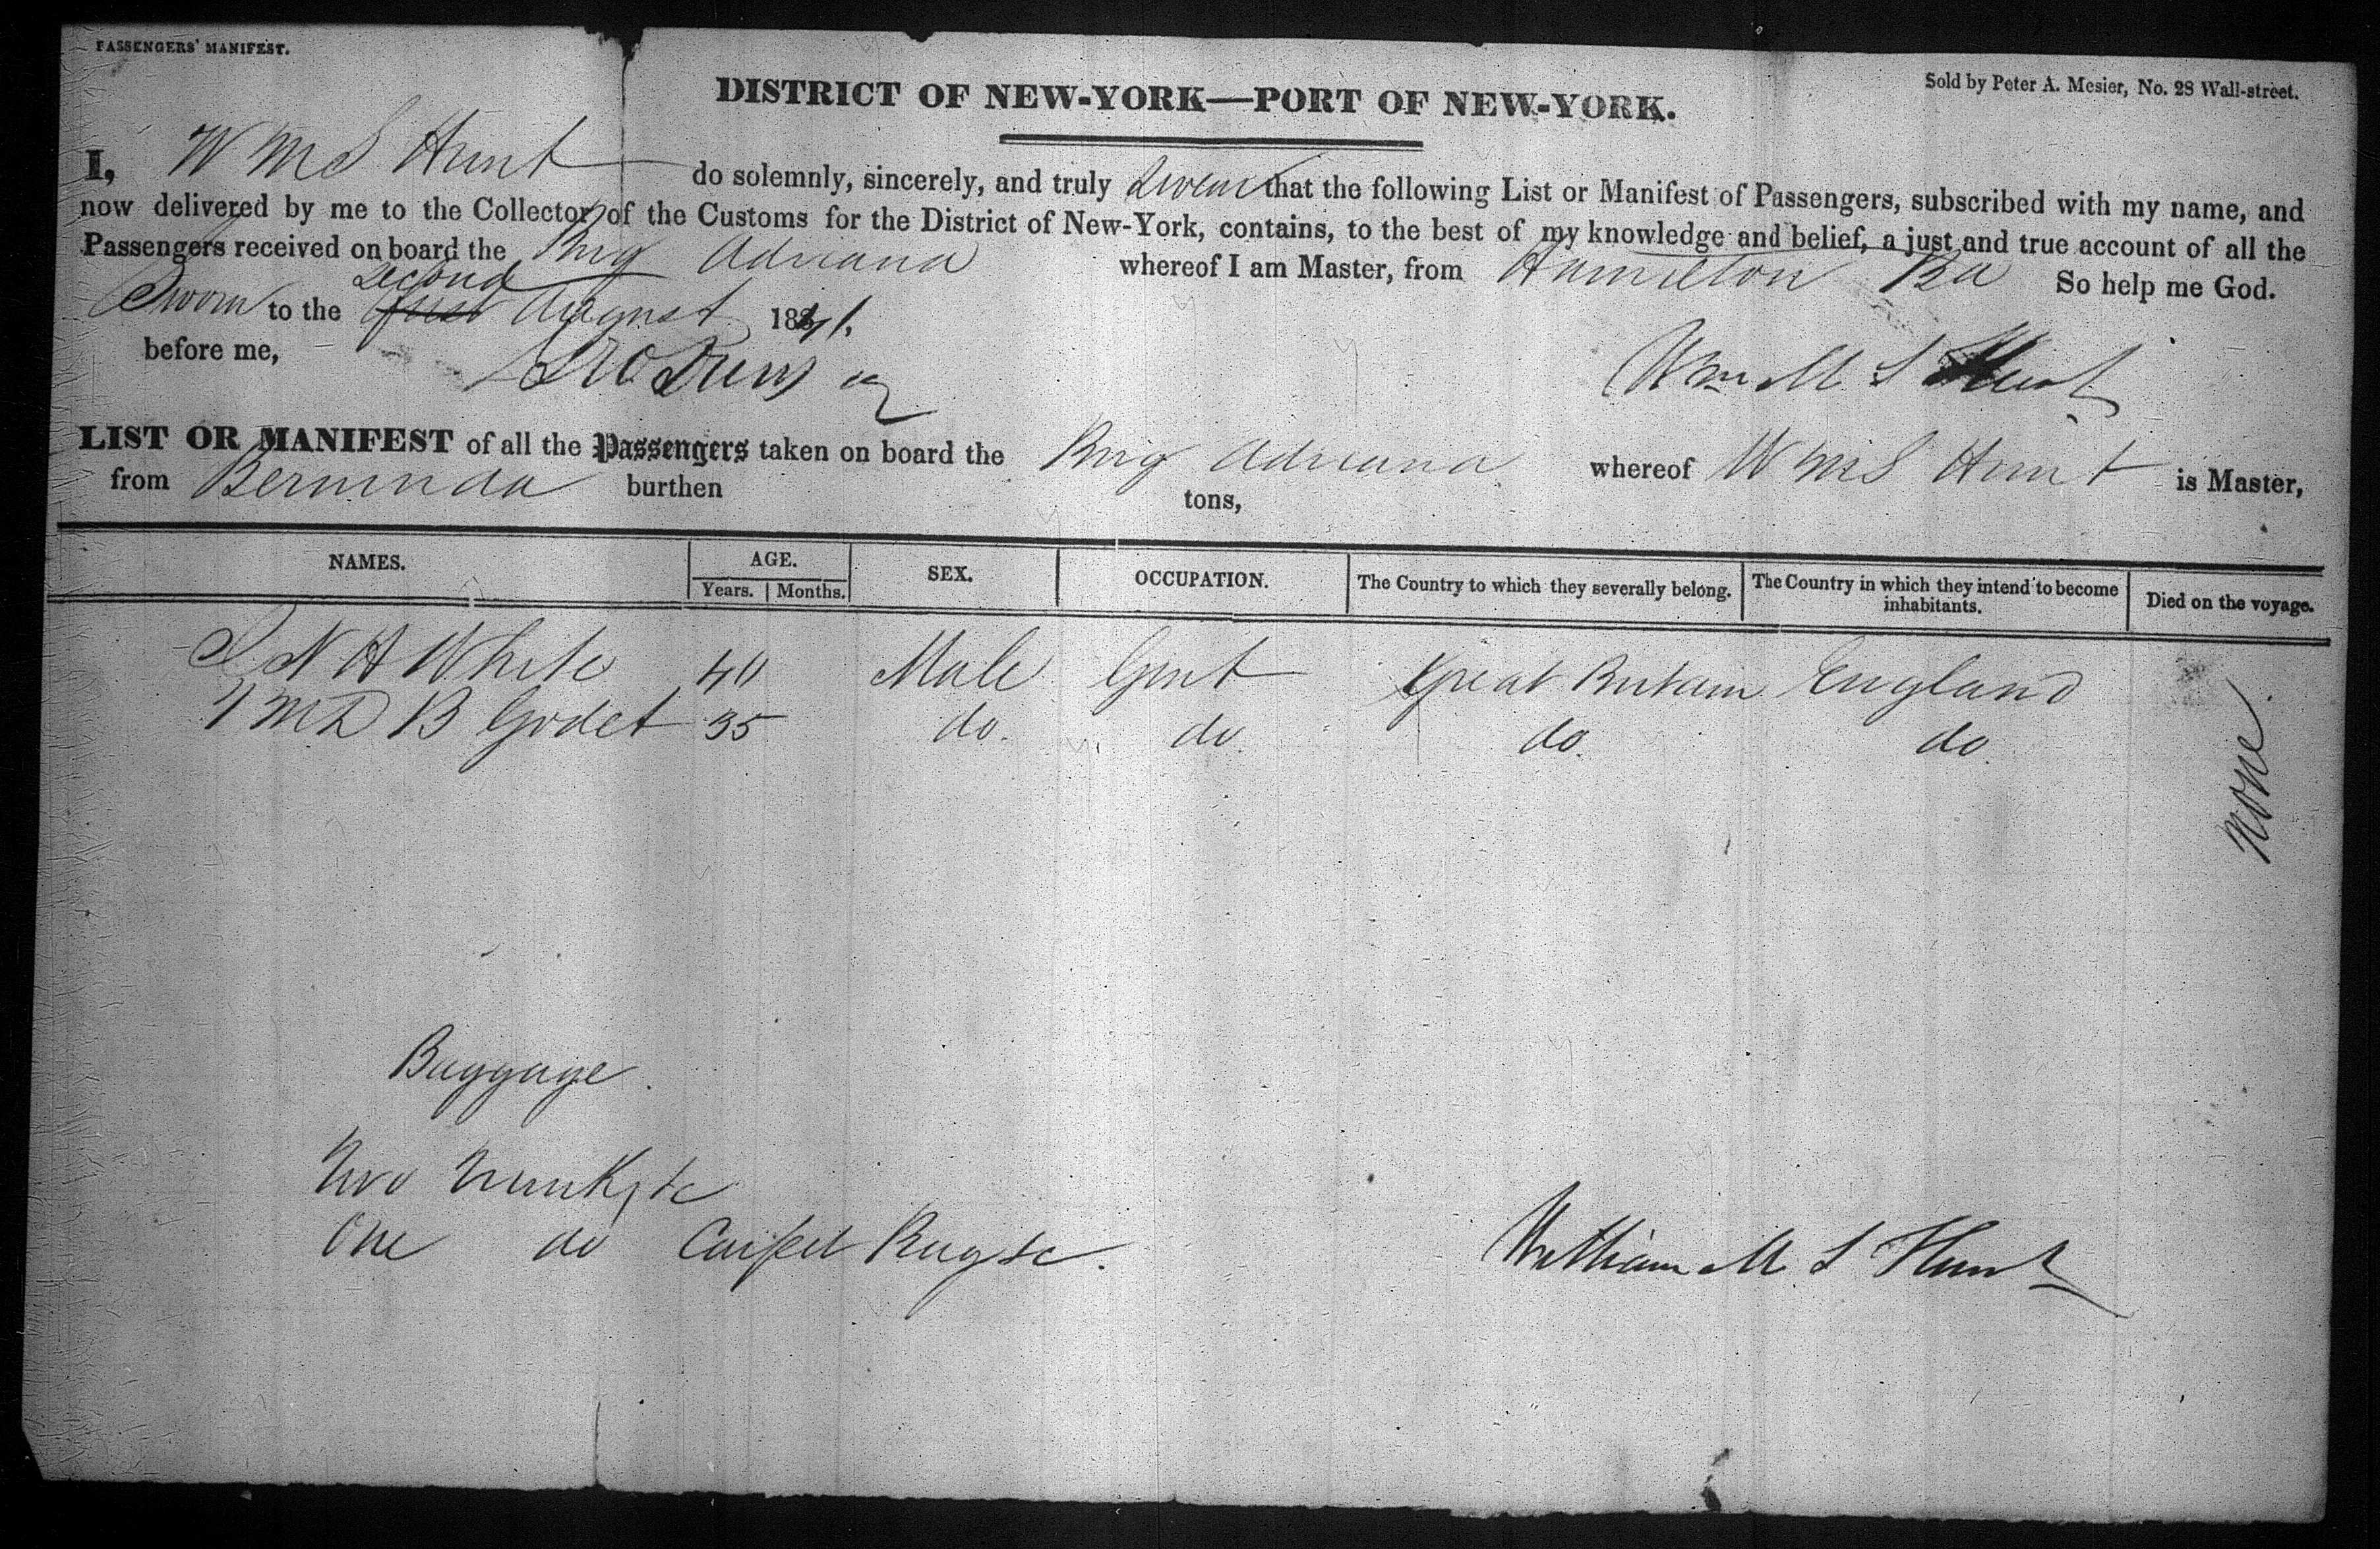 PASSENGERS' MANIFEST.
Sold by Peter A. Mesier, No. 28 Wall-street.
DISTRICT OF NEW-YORK—PORT OF NEW-YORK.
I, W M S Hunt do solemnly, sincerely, and truly Swear that the following List or Manifest of Passengers, subscribed with my name, and
now delivered by me to the Collector of the Customs for the District of New-York, contains, to the best of my knowledge and belief, a just and true account of all the
Passengers received on board the Brig Adriana whereof I am Master, from Hamilton Ba So help me God.
Sworn to the first second August 1841.
before me,
Wm M S Hunt
LIST OR MANIFEST of all the Passengers taken on board the Brig Adriana whereof W M S Hunt is Master,
from Bermuda burthen tons,
NAMES. AGE. Years. Months. SEX. OCCUPATION. The Country to which they severally belong. The Country in which they intend to become inhabitants. Died on the voyage.
N H White 40 Male Gent Great Britain England
B Godet 35 do. do. do. do.
none
Baggage.
Two Trunks &c
One do Carpet Bag &c.
William M S Hunt